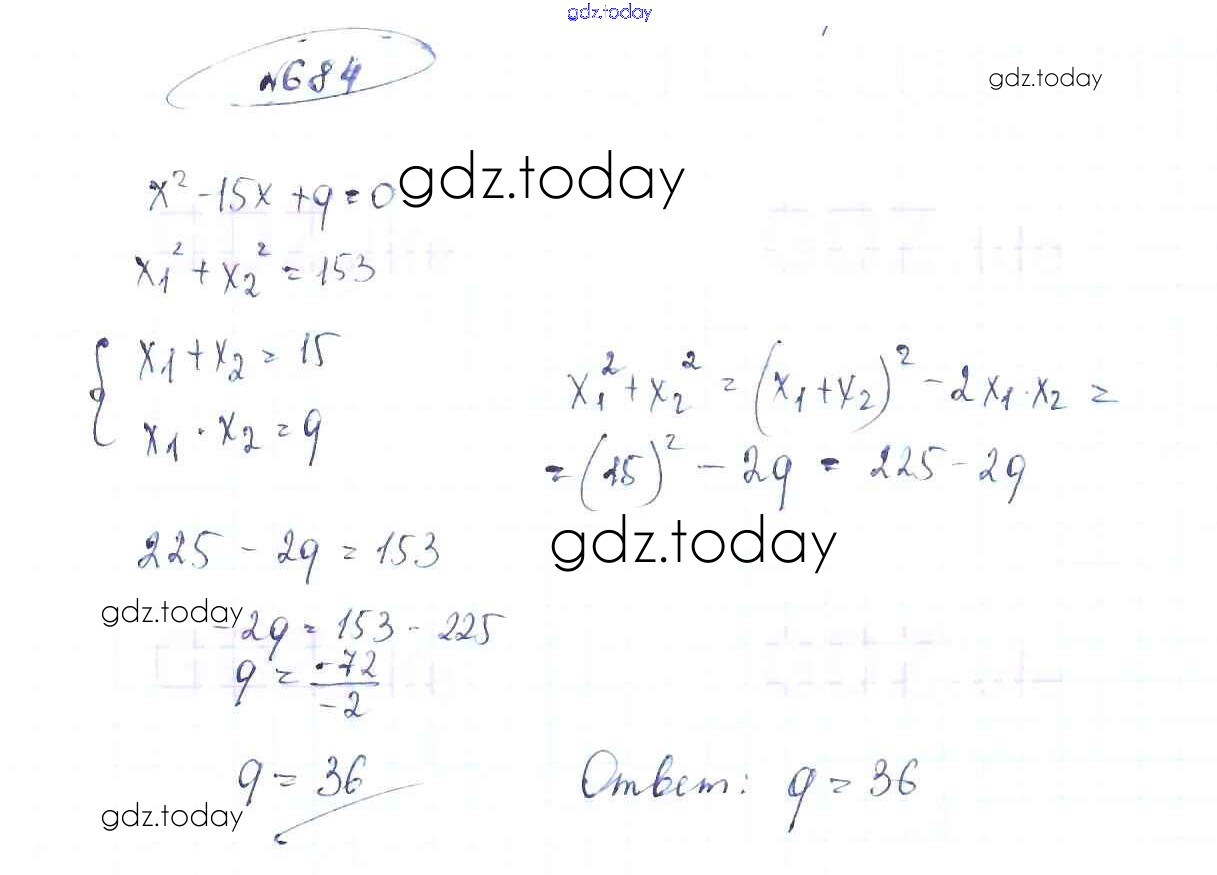 gdz.today
№684
gdz.today
x² - 15x + q = 0
gdz.today
x₁² + x₂² = 153
x₁ + x₂ = 15
x₁ · x₂ = q
x₁² + x₂² = (x₁ + x₂)² - 2x₁·x₂ =
= (15)² - 2q = 225 - 2q
225 - 2q = 153
gdz.today
gdz.today
-2q = 153 - 225
q = -72/-2
q = 36
Ответ: q = 36
gdz.today